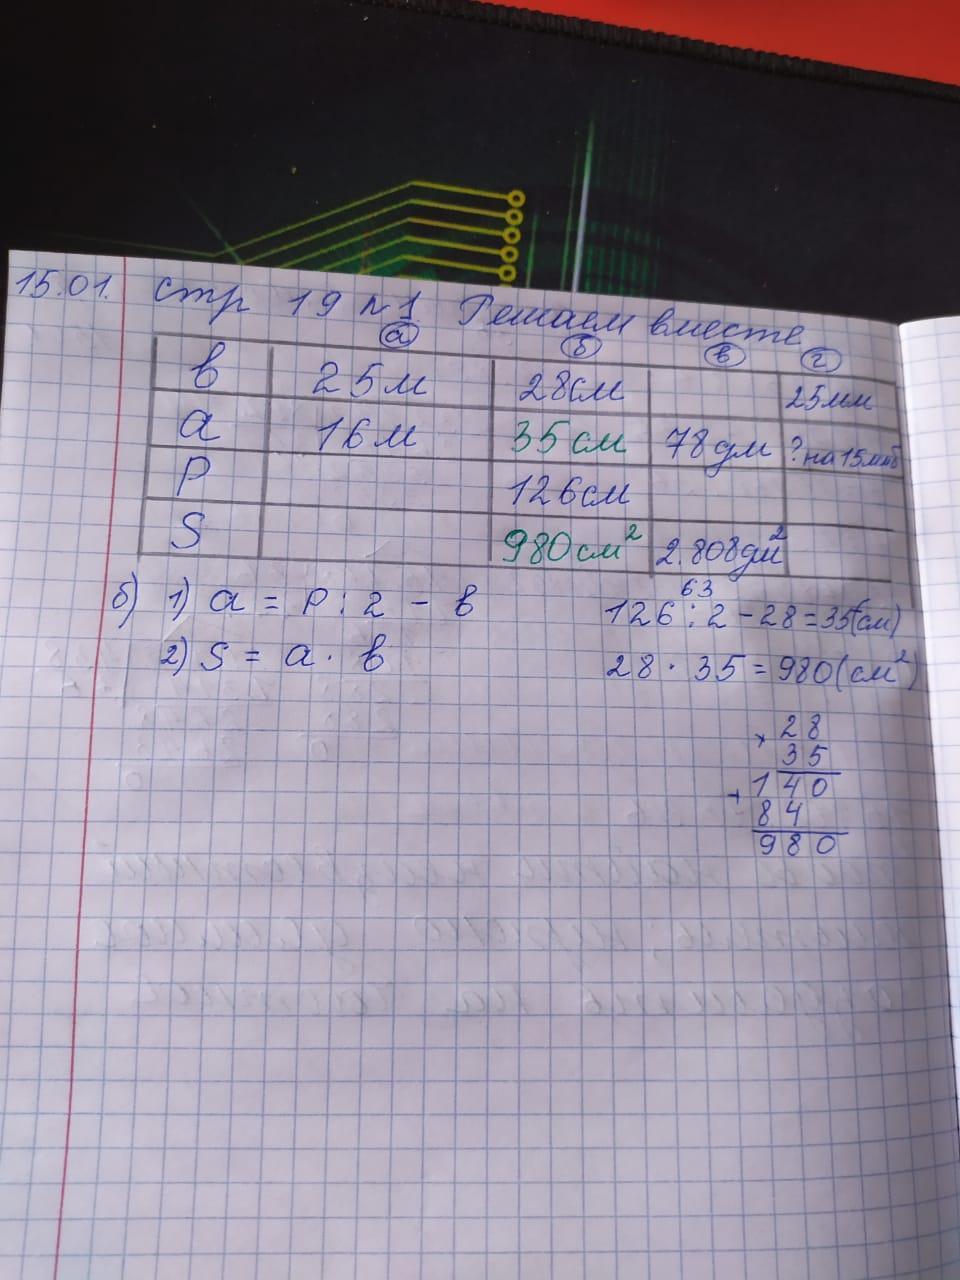 15.01. стр 19 №1 Решаем вместе
а б в г
в 25м 28см 25мм
а 16м 35см 78дм ? на 15мм б
Р 126см
S 980см² 2.808дм²
б) 1) а = Р : 2 - в 126 : 2 - 28 = 35(см)
63
2) S = а · в 28 · 35 = 980(см²)
× 28
35
+ 140
84
980